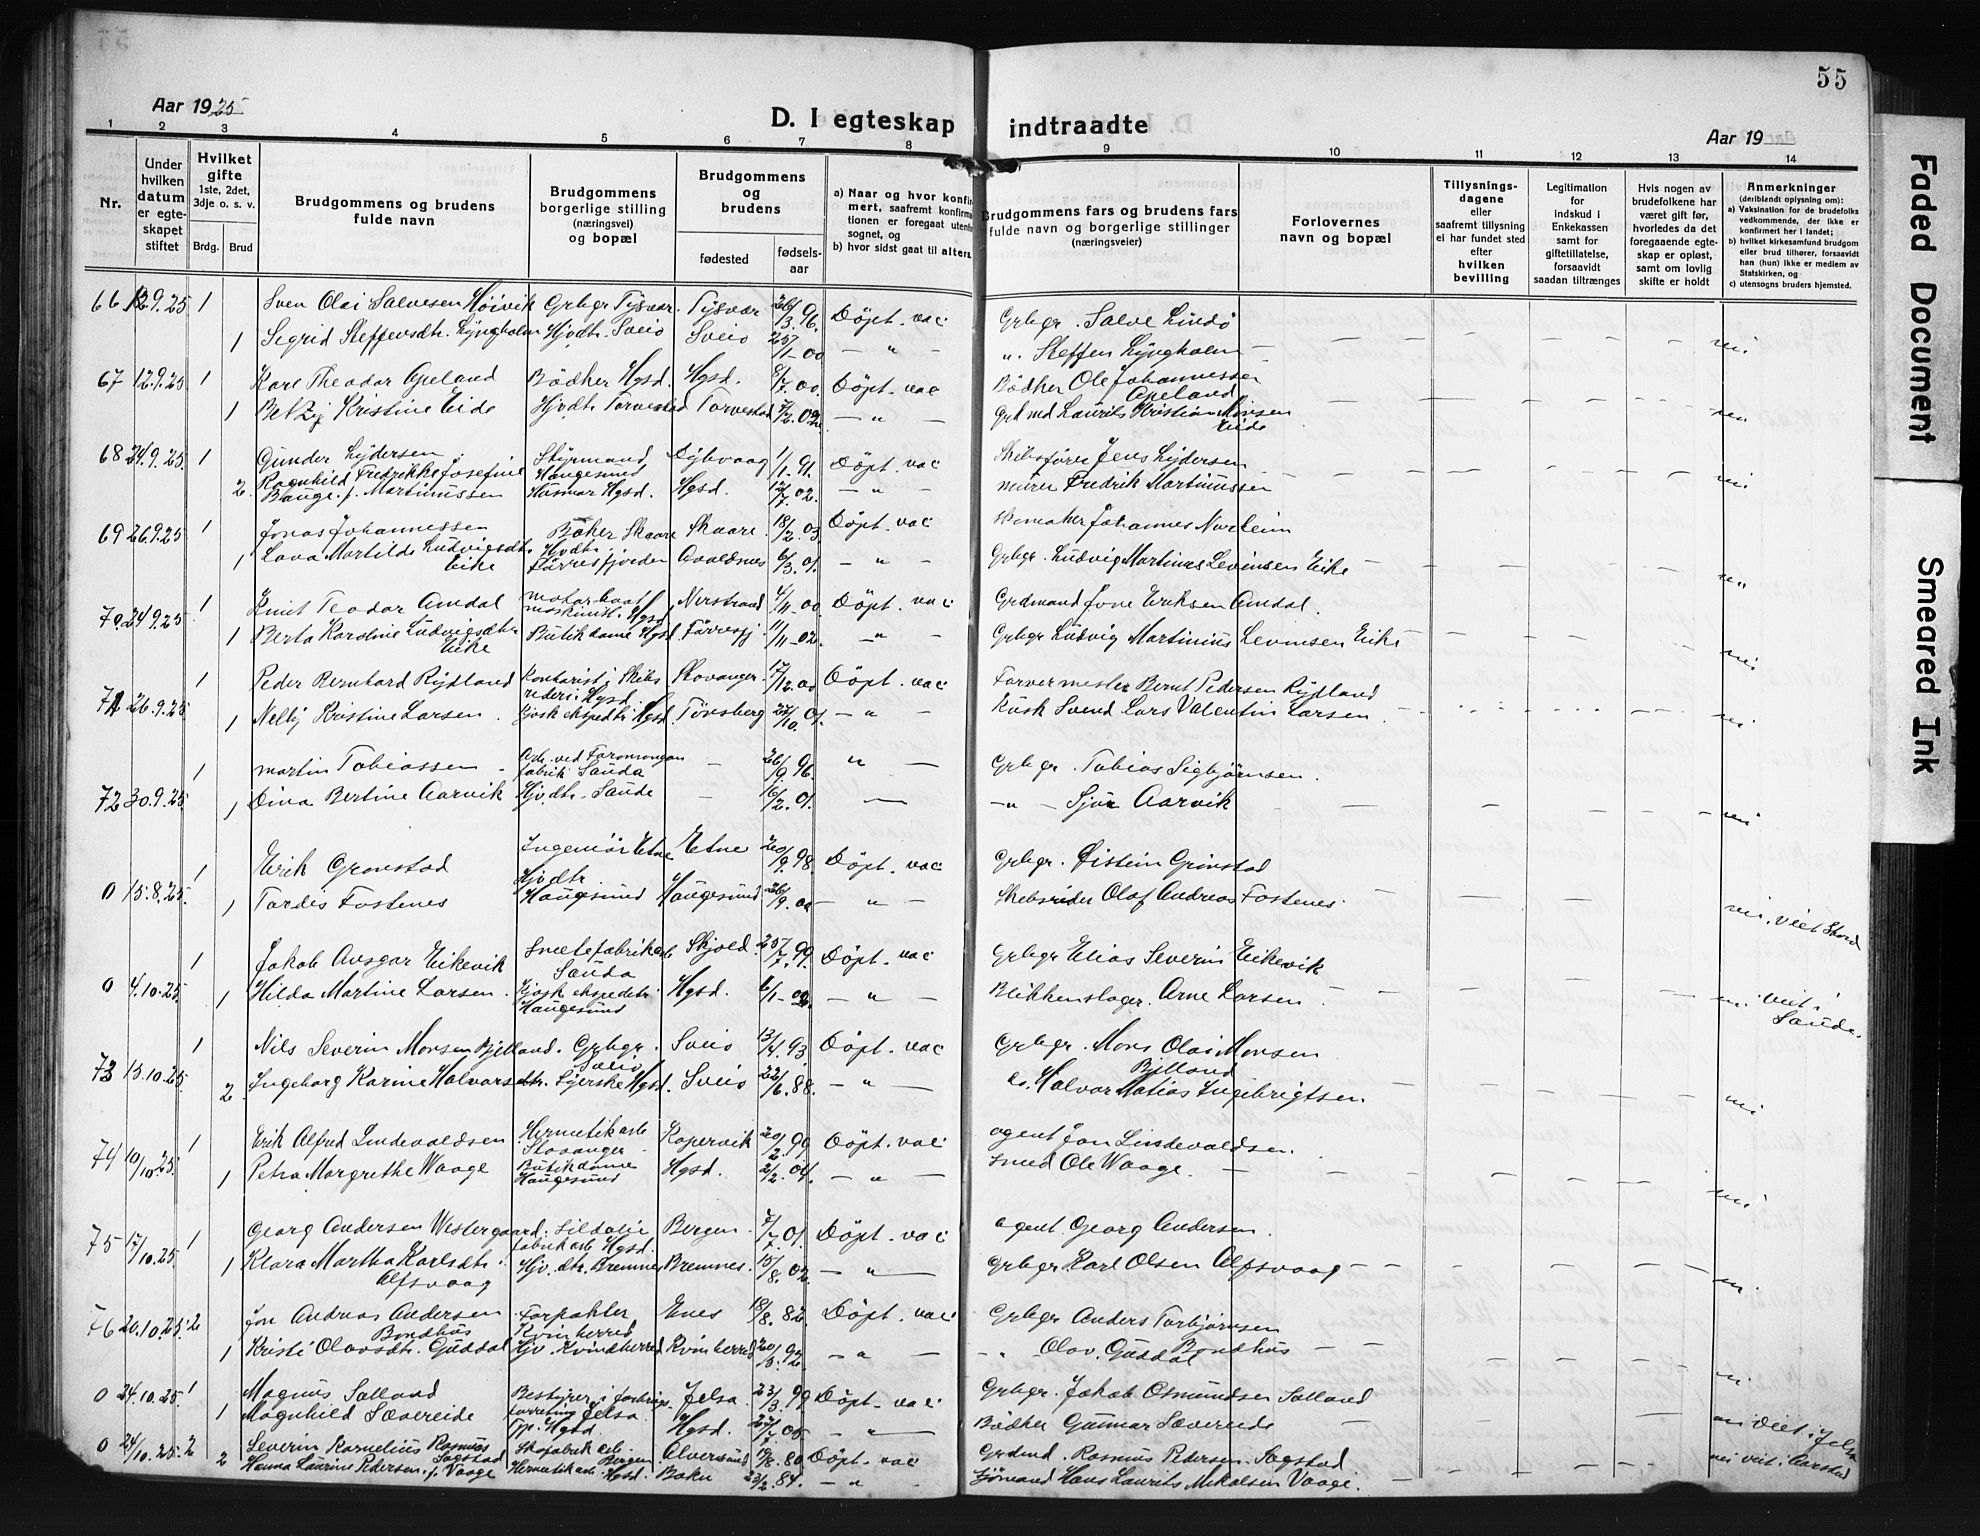 55
Aar 1925
D. I egteskap indtraadte
Aar 19
1 2 3 4 5 6 7 8 9 10 11 12 13 14
Nr.
Under hvilken datum er egteskapet stiftet
Hvilket gifte 1ste, 2det, 3dje o. s. v.
Brdg. Brud
Brudgommens og brudens fulde navn
Brudgommens borgerlige stilling (næringsvei) og bopæl
Brudgommens og brudens
fødested
fødsels-aar
a) Naar og hvor konfirmert, saafremt konfirmationen er foregaat utenfor sognet, og
b) hvor sidst gaat til alters
Brudgommens fars og brudens fars fulde navn og borgerlige stillinger (næringsveier)
Forlovernes navn og bopæl
Tillysnings-dagene eller saafremt tillysning ei har fundet sted efter hvilken bevilling
Legitimation for indskud i Enkekassen samt for giftetillatelse, forsaavidt saadan tiltrænges
Hvis nogen av brudefolkene har været gift før, hvorledes da det foregaaende egteskap er opløst, samt om lovlig skifte er holdt
Anmerkninger (deriblandt oplysning om):
a) Vaksination for de brudefolks vedkommende, der ikke er konfirmert her i landet;
b) hvilket kirkesamfund brudgom eller brud tilhører, forsaavidt han (hun) ikke er medlem av Statskirken, og
c) utensogns bruders hjemsted.
66 12.9.25 1 Sven Olai Salvesen Høivik Grbgr Tysvær. Tysvær 26/3.96. Döpt. vac Grbgr. Salve Lindö
1 Sigrid Steffensdtr. Lyngholm Hjvdtr. Sveio Sveio 25/1-00 — " — ". Steffen Lyngholm nei
67 12.9.25 1 Karl Theodor Apeland Bödker Hgsd. Hgsd. 8/7.00. Döpt. vac Bödker Ole Johannessen Apeland
1 Betzy Kristine Eide Hjvdtr. Torvestad Torvestad 7/2.02 — " — Grd md Laurits Kristian Monsen Eide nei
68 24.9.25 1 Gunder Lydersen Styrmand Haugesund Dybvaag 1/1.91. Döpt. vac Skibsfører Jens Lydersen
2 Ragnhild Fredrikke Josefine Bauge f. Martinussen Husmor Hgsd. Hgsd. 12/7.02. — " — murer Fredrik Martinussen nei
69 26.9.25 1 Jonas Johannessen Baker Skaare Skaare. 18/2.03 Döpt vac Skomaker Johannes Norheim
1 Lava Martilde Ludvigsdtr. Eike Hjvdtr. Förresfjorden Avaldsnes 6/3.01. — " — Grbgr. Ludvig Martinus Levinsen Eike nei
70 24.9.25 1 Knut Teodor Amdal motorbaat maskinist. Hgsd Nerstrand 4/11-00 Döpt. vac Grdmand Jone Eriksen Amdal.
1 Berta Karoline Ludvigsdtr. Eike Butikdame Hgsd Förresfj 11/11-02. — " — Grbgr Ludvig Martinius Levinsen Eike nei
71 26.9.25 1 Peder Bernhard Rydland Kontorist j Skibsrederi. Hgsd Stavanger. 17/12.00 Döpt. vac Farvermester Bernt Pedersen Rydland
1 Nelly Kristine Larsen. Kjosk ekspedtr. Hgsd. Tönsberg 22/10.01. — " — Kusk Svend Lars Valentin Larsen nei
72 30.9.25 1 martin Tobiassen Arb. ved fabrik Sauda — 26/9.96. " — Grbgr. Tobias Sigbjörnsen.
1 Dina Bertine Aarvik Hjvdtr. Saude — 16/2.01. — — " — Sjur Aarvik nei
0 15.8.25. 1 Erik Grønstad Ingeniör Etne Etne 20/9.98. Döpt. vac Grbgr. Øistein Grinstad
1 Tordis Fostenes Hjvdtr Haugesund Haugesund 26/9.00 — " — Skibsreder Olaf Andreas Fostenes. nei. viet Stord
0 4.10.25 1 Jakob Ansgar Eikevik Smeltefabrikarb Sauda Skjold. 25/7.99. Döpt. vac Grbgr Elias Severin Eikevik
1 Hilda Martine Larsen. Kjosk ekspedtr. Haugesund Hgsd. 6/1-02. — " — Blikkenslager. Arne Larsen nei viet i Saude.
73 15.10.25 1 Nils Severin Monsen Bjelland. Grbgr. Sveio Sveio 13/4.93. Döpt. vac Grbgr. Mons Olai Monsen Bjelland
2 Ingeborg Karine Halvorsdtr. Syerske Hgsd. Sveio 22/6.88. — " — do. Halvor Matias Ingebrigtsen nei
74 10/10.25. 1 Erik Alfred Lindevaldsen Hermetikarb Stavanger Kopervik 20/2.99 Döpt. vac agent Jon Lindevaldsen.
1 Petra Margrethe Waage Butikdame Haugesund Hgsd. 2/2.04. — " — smed Ole Waage. nei
75 17/10.25. 1 Georg Andersen Westergaard. Sildolie fabrikarb Hgsd. Bergen 7/7.01. Döpt. vac agent Georg Andersen.
1 Klara Martha Karlsdtr. Alfsvaag Hjv. dtr. Bremnes Bremnes. 15/8.02. — " — Grbgr. Karl Olsen Alfsvaag nei
76 20.10.25. 2 Jon Andreas Andersen Bondhus Forpakter Kvinherred Enes 18/8.82. Döpt. vac Grbgr Anders Torbjörnsen Bondhus
1 Kristi Olavsdtr. Guddal Hjv. Kvindherred Kvinherred 20/3.92. — " — — " Olav. Guddal nei
0 24.10.25. 1 Magnus Salland Bestyrer i forbrugsforretning Jelsa. Jelsa. 23/3.99 Döpt. vac Grbgr. Jakob Osmundsen Salland
1 Magnhild Sævereide Hgsd. Hgsd. 27/7.05 — " — Bödker Gunnar Sævereide nei viet i Jelsa
0 24/10.25. 2 Severin Kornelius Rasmus Sagstad Skofabrik arb. Bergen Alversund 19/8.80 Döpt. vac Grdmd. Rasmus Pedersen. Sagstad
2 Hanna Laurine Pedersen. f. Vaage Hermetikarb. Hgsd. Bokn 23/2.84. — " — Sjömand Hans Laurits Mikalsen Vaage. nei viet i Aarstad
Faded Document
Smeared Ink